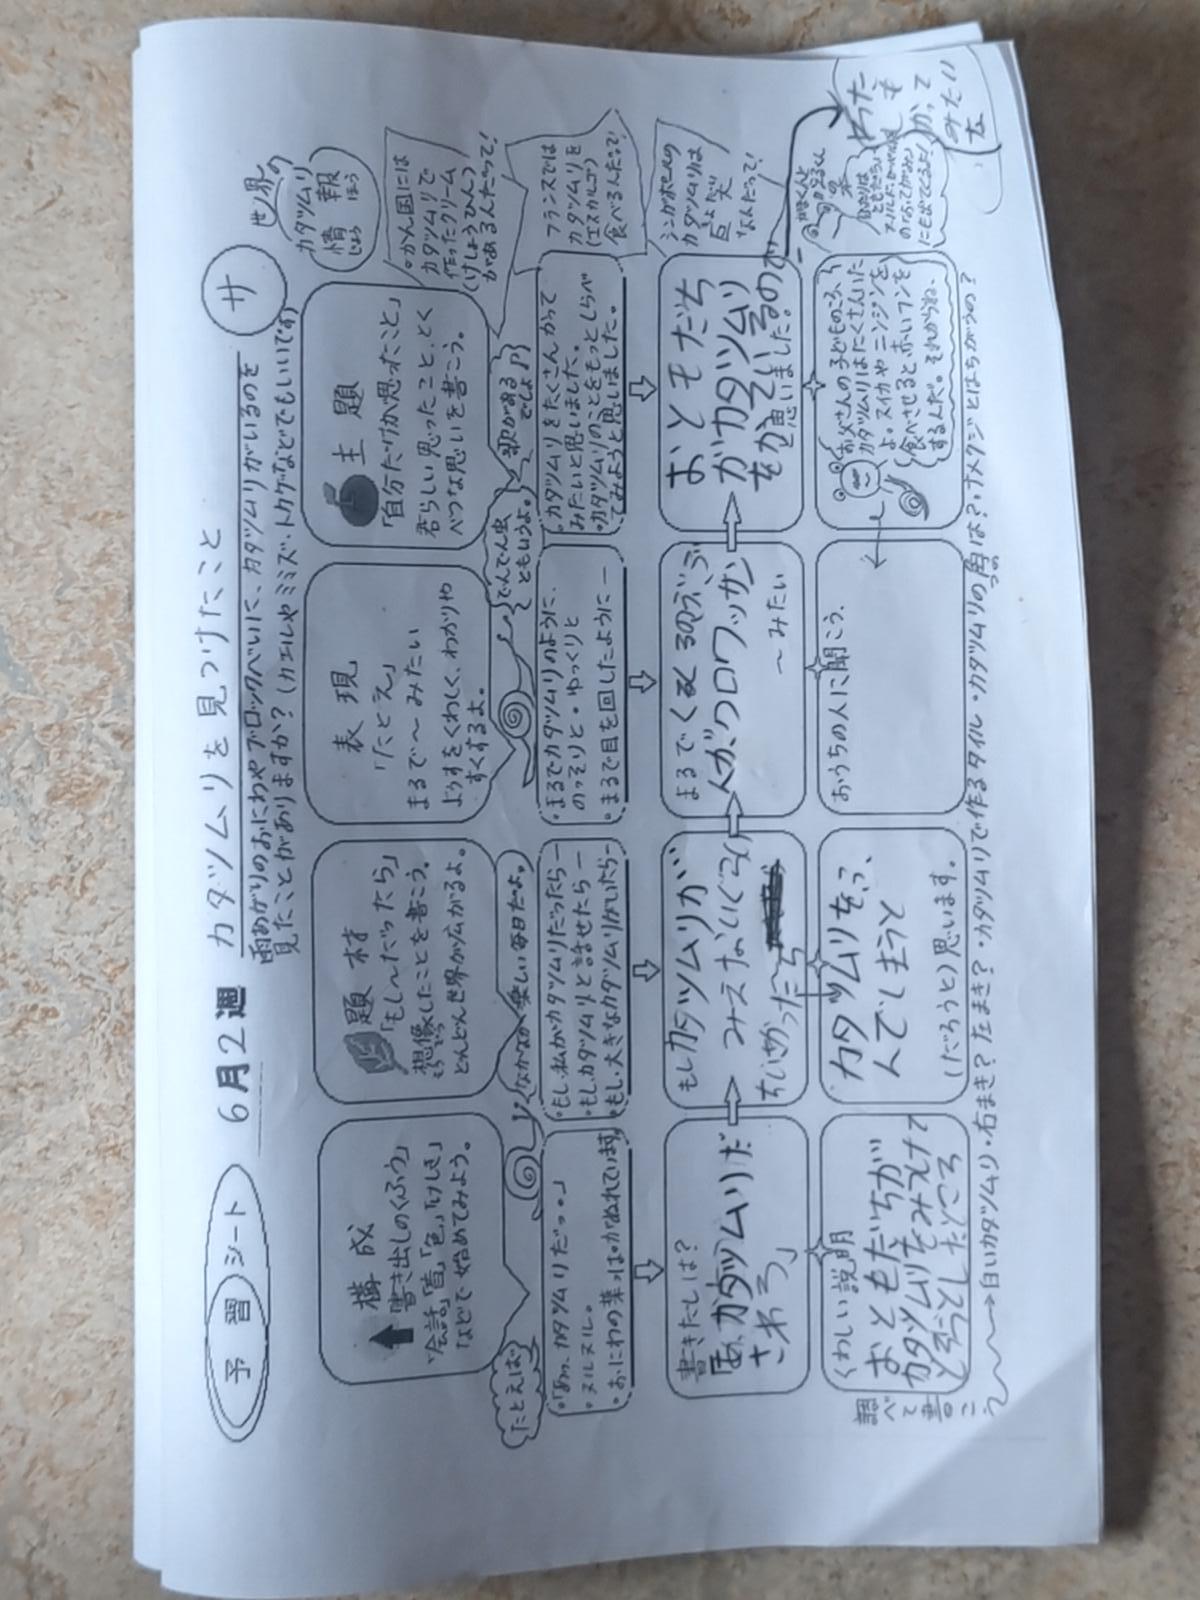 予習シート 6月2週 カタツムリを見つけたこと
サ
雨あがりのおにわやブロックべいに、カタツムリがいるのを
見たことがありますか?(カエルやミミズ・トカゲなどでもいいです)
世界の
カタツムリ
情報
じょうほう
構成
「書き出しのくふう」
「会話」「音」「色」「けしき」
などで始めてみよう。
題材
「もし〜だったら」
想像したことを書こう。
どんどん世界が広がるよ。
表現
「たとえ」
まるで〜みたい
ようすをくわしく、わかりや
すくするよ。
主題
「自分だけが思ったこと」
君らしい思ったこと、とく
べつな思いを書こう。
・かん国には
カタツムリで
作ったクリーム
(けしょうひん)
があるんだって!
フランスでは
カタツムリを
(エスカルゴ)
食べるんだって!
シンガポールの
カタツムリは
きょだい
なんだって!
たとえば
なかなか楽しい毎日だよ。
でんでん虫
ともいうよ。
歌がある
でしょ♪
・「あっ、カタツムリだっ。」
・ヌルヌル。
・おにわの葉っぱがぬれています。
・もし、私がカタツムリだったら―
・もし、カタツムリと話せたら―
・もし、大きなカタツムリがいたら―
・まるでカタツムリのように、
のっそりと・ゆっくりと
・まるで目を回したように―
・カタツムリをたくさんかって
みたいと思いました。
・カタツムリのことをもっとしらべ
てみようと思いました。
書きだしは?
「あ、カタツムリだ
さわろう」
もしカタツムリが
みえないぐらい
ちいさかったら
まるでくるくるのパン
クロワッサン
〜みたい
おともだち
がカタツムリ
をかっているので
思いました。
わたし
も
かって
みたい
な
くわしい説明
おともだちが
カタツムリをみつけて
とろうとしたところ
カタツムリをふ
んでしまうと
(だろうと)思います。
おうちの人に聞こう。
お父さんの子どものころ、
カタツムリはたくさんいた
よ。スイカやニンジンを
食べさせると赤いフンを
するんだ。それからね、
調べて書こう
→白いカタツムリ・右まき?左まき?・カタツムリで作るタイル・カタツムリの角は?・ナメクジとはちがうの?